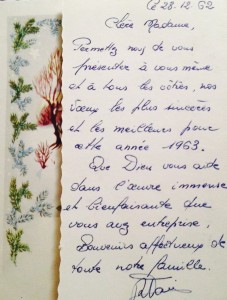 le 28.12.62
Chère Madame,
Permettez nous de vous
présenter à vous même
et à tous les vôtres, nos
vœux les plus sincères
et les meilleurs pour
cette année 1963.
Que Dieu vous aide
dans l'œuvre immense
et bienfaisante que
vous avez entreprise.
Souvenirs affectueux de
toute notre famille.